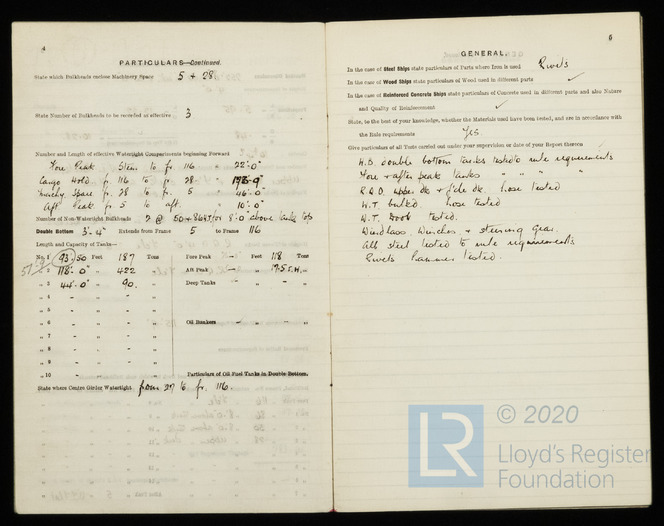 4
PARTICULARS—Continued.
State which Bulkheads enclose Machinery Space 5 + 28
State Number of Bulkheads to be recorded as effective 3
Number and Length of effective Watertight Compartments beginning Forward
Fore Peak Stem to fr. 116 22'.0"
Cargo Hold fr. 116 to fr. 28
Machy Space fr. 28 to fr. 5 46'.0"
Aft Peak fr. 5 to aft. 10'.0"
Number of Non-Watertight Bulkheads 2 @ 50 + 86 8'.0" above tank top
Double Bottom 3'.4" Extends from Frame 5 to Frame 116
Length and Capacity of Tanks—
No. 1 Feet 187 Tons Fore Peak — Feet 118 Tons
„ 2 118'.0" „ 422 „ Aft Peak — „ „
„ 3 44'.0" „ 90. „ Deep Tanks — „ — „
„ 4 — „ — „
„ 5 — „ — „
„ 6 — „ — „ Oil Bunkers — „ — „
„ 7 — „ — „
„ 8 — „ — „
„ 9 — „ — „
„ 10 — „ — „ Particulars of Oil Fuel Tanks in Double Bottom.
State where Centre Girder Watertight from 27 to fr. 116.
5
GENERAL.
In the case of Steel Ships state particulars of Parts where Iron is used Rivets
In the case of Wood Ships state particulars of Wood used in different parts ✓
In the case of Reinforced Concrete Ships state particulars of Concrete used in different parts and also Nature
and Quality of Reinforcement ✓
State, to the best of your knowledge, whether the Materials used have been tested, and are in accordance with
the Rule requirements Yes
Give particulars of all Tests carried out under your supervision or date of your Report thereon
W.B. double bottom tanks tested to rule requirements
Fore + after peak tanks " " " "
R.Q.D. upper dk + f'cle dk. hose tested
W.T. bulkd. hose tested
W.T. Door tested.
Windlass, Winches + steering Gear.
All steel tested to rule requirements.
Rivets hammer tested.
LR © 2020
Lloyd's Register
Foundation